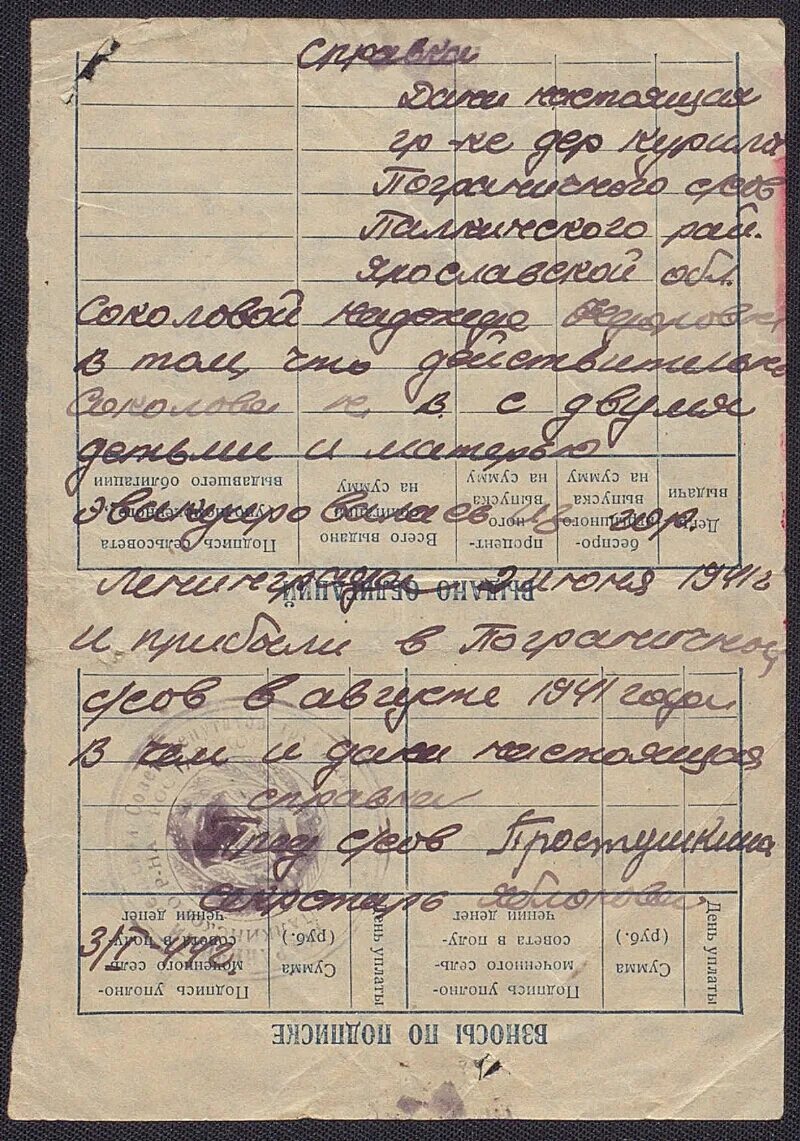 Справка
Дана настоящая
гр-ке дер Курила
Пограничного с/сов
Палкинского рай.
Ярославской обл.
Соколовой Надежде
в том, что действительно
Соколова Н. В. с двумя
детьми и матерью
эвакуировались из гор.
Ленинграда 2 июня 1941 г
и прибыли в Пограничной
с/сов в августе 1941 года
В чем и дана настоящая
справка
Пред с/сов Простушкина
секретарь Яблокова
ВЗНОСЫ ПО ПОДПИСКЕ
День уплаты
Сумма (руб.)
Подпись уполно-
моченного сель-
совета в полу-
чении денег
День уплаты
Сумма (руб.)
Подпись уполно-
моченного сель-
совета в полу-
чении денег
ВЫДАНО ОБЛИГАЦИЙ
выдачи
беспро-
выпуска
на сумму
процент-
ного
выпуска
на сумму
Всего выдано
облигаций
на сумму
Подпись
сельсовета,
выдавшего облигации